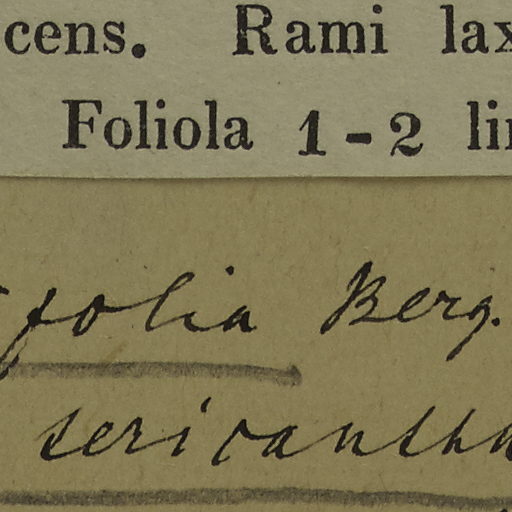 cens. Rami lax
Foliola 1-2 lin
folia Berg.
sericantha